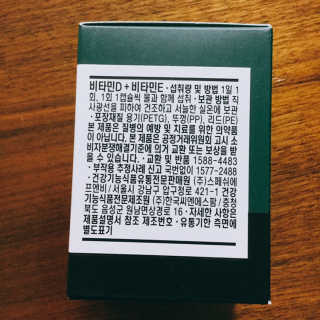 비타민D + 비타민E · 섭취량 및 방법 1일 1
회, 1회 1캡슐씩 물과 함께 섭취 · 보관 방법 직
사광선을 피하여 건조하고 서늘한 실온에 보관
· 포장재질 용기(PETG), 뚜껑(PP), 리드(PE)
본 제품은 질병의 예방 및 치료를 위한 의약품
이 아닙니다. 본 제품은 공정거래위원회 고시 소
비자분쟁해결기준에 의거 교환 또는 보상을 받
을 수 있습니다. · 교환 및 반품 1588-4483
· 부작용 추정사례 신고 국번없이 1577-2488
· 건강기능식품유통전문판매원 (주)스페쉬에
프엔비/서울시 강남구 압구정로 421-1 건강
기능식품전문제조원 (주)한국씨엔에스팜/충청
북도 음성군 원남면상경로 16 · 자세한 사항은
제품설명서 참조 제조번호 · 유통기한 측면에
별도표기